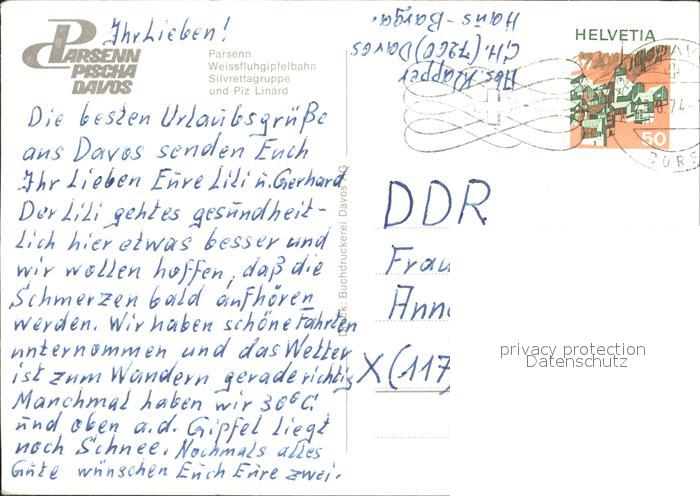 PARSENN
PISCHA
DAVOS
Ihr Lieben!
Parsenn
Weissfluhgipfelbahn
Silvrettagruppe
und Piz Linard
Die besten Urlaubsgrüße
aus Davos senden Euch
Ihr Lieben Eure Lili u. Gerhard
Der Lili geht es gesundheit-
lich hier etwas besser und
wir wollen hoffen, daß die
Schmerzen bald aufhören
werden. Wir haben schöne Fahrten
unternommen und das Wetter
ist zum Wandern gerade richtig
Manchmal haben wir 30°C
und oben a.d. Gipfel liegt
noch Schnee. Nochmals alles
Gute wünschen Euch Eure zwei.
Druck: Buchdruckerei Davos AG
Abs. Klapper
CH. (7260) Davos
Haus-Barga.
HELVETIA
50
74
DDR
Frau
Ann
X (117
privacy protection
Datenschutz